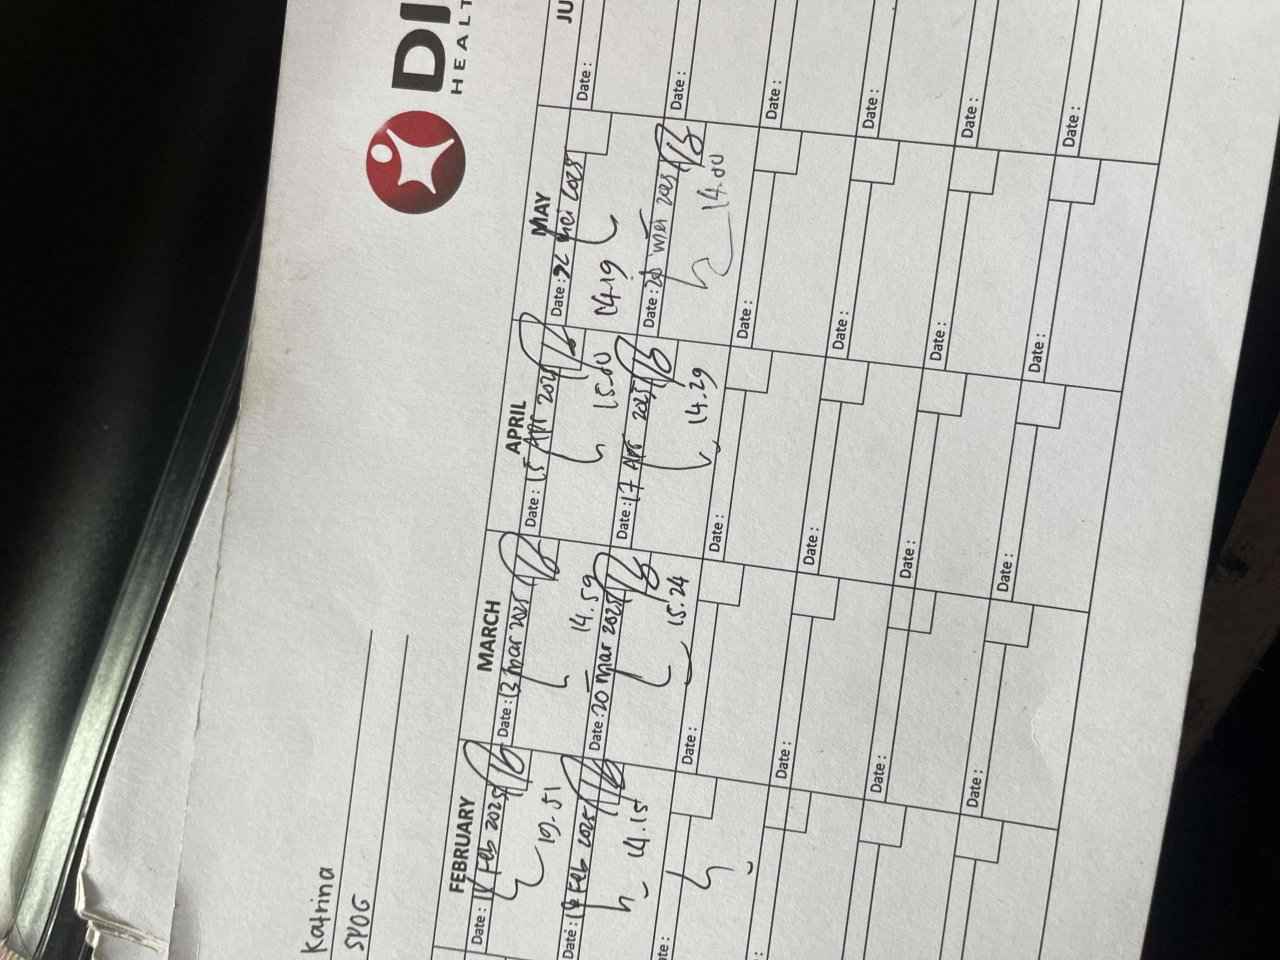 DI
HEALT
Katrina
SPOG
FEBRUARY MARCH APRIL MAY JU
Date: Feb 2025 Date: 13 Mar 2025 Date: 15 Apr 2025 Date: Mei 2025 Date:
14.59 15.00 14.19
Date: Feb 2025 Date: 20 Mar 2025 Date: 17 Apr 2025 Date: 20 Mei 2025 Date:
14.15 15.24 14.29 14.00
Date: Date: Date: Date:
Date: Date: Date: Date:
Date: Date: Date: Date:
Date: Date: Date: Date: